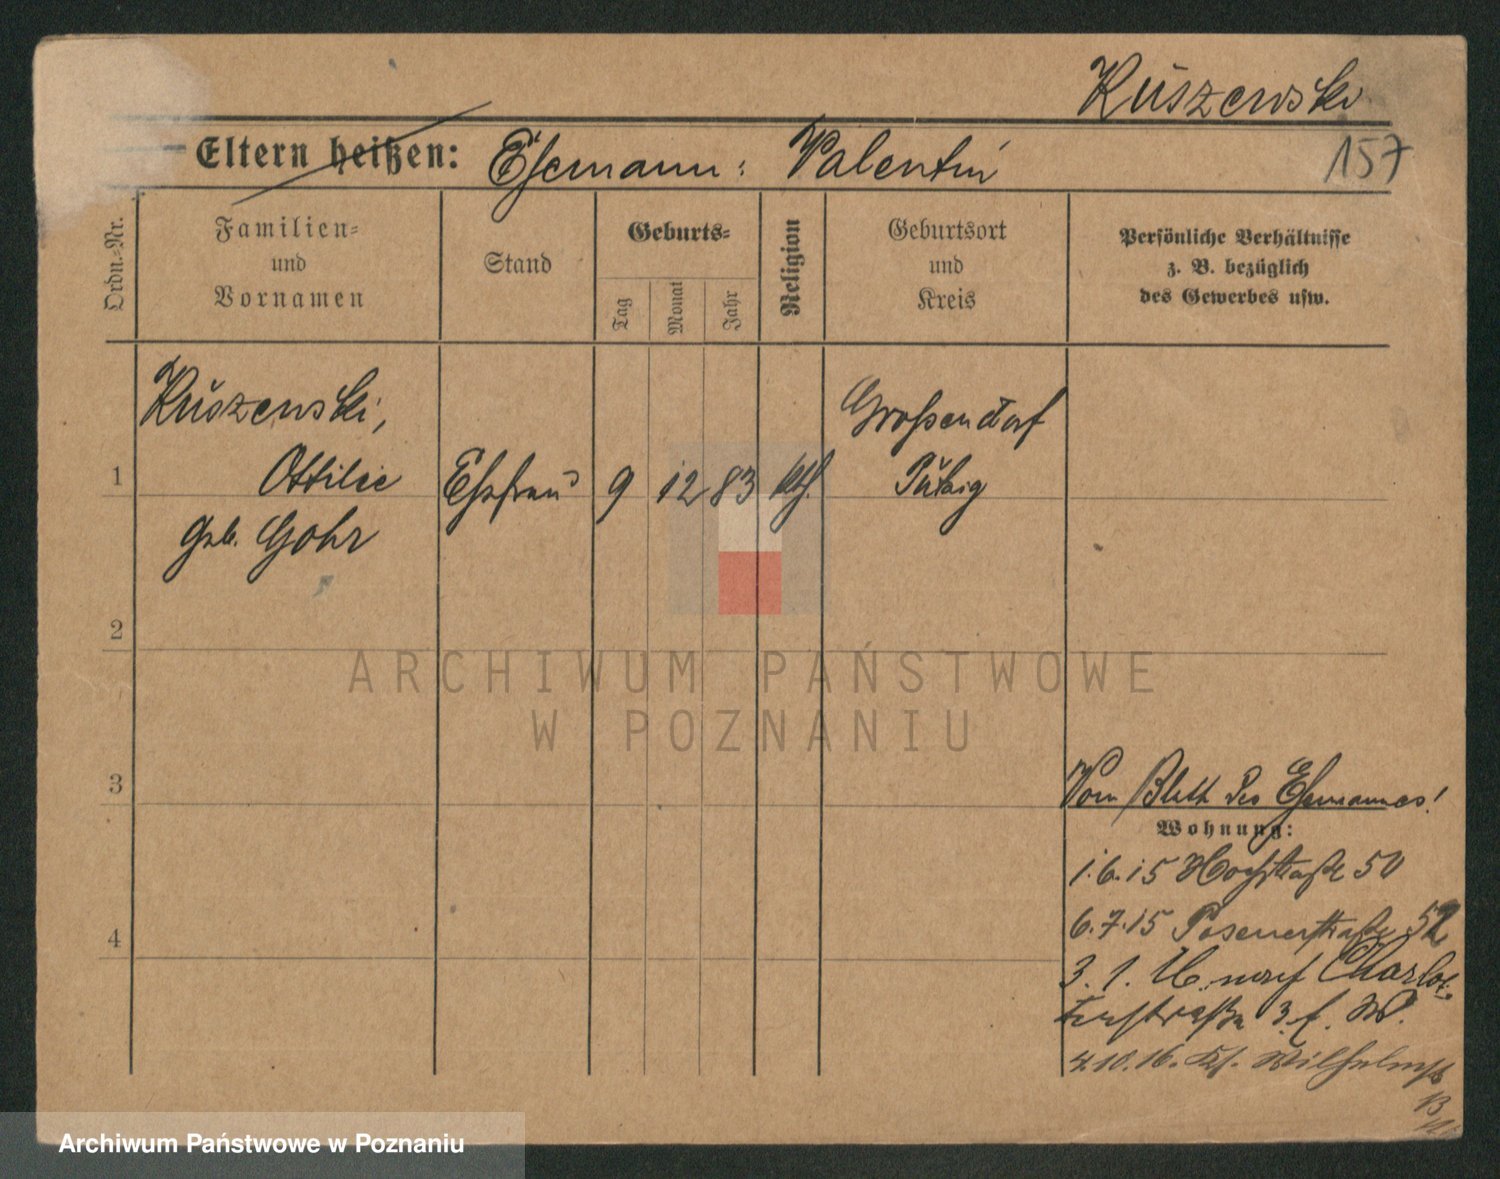 Kuszewski
Eltern heißen: Ehemann: Valentin
157
Ordn.-Nr.
Familien-
und
Vornamen
Stand
Geburts-
Tag
Monat
Jahr
Religion
Geburtsort
und
Kreis
Persönliche Verhältnisse
z. B. bezüglich
des Gewerbes usw.
Kuszewski,
Ottilie
geb. Gohr
1
Ehefrau
9
12
83
kth.
Großendorf
Putzig
2
3
4
Vom Blatt des Ehemannes!
Wohnung:
1.6.15 Hochstraße 50
6.7.15 Posenerstraße 52
3. 1.
straße 3.
4.10.16.
13
ARCHIWUM PAŃSTWOWE
W POZNANIU
Archiwum Państwowe w Poznaniu